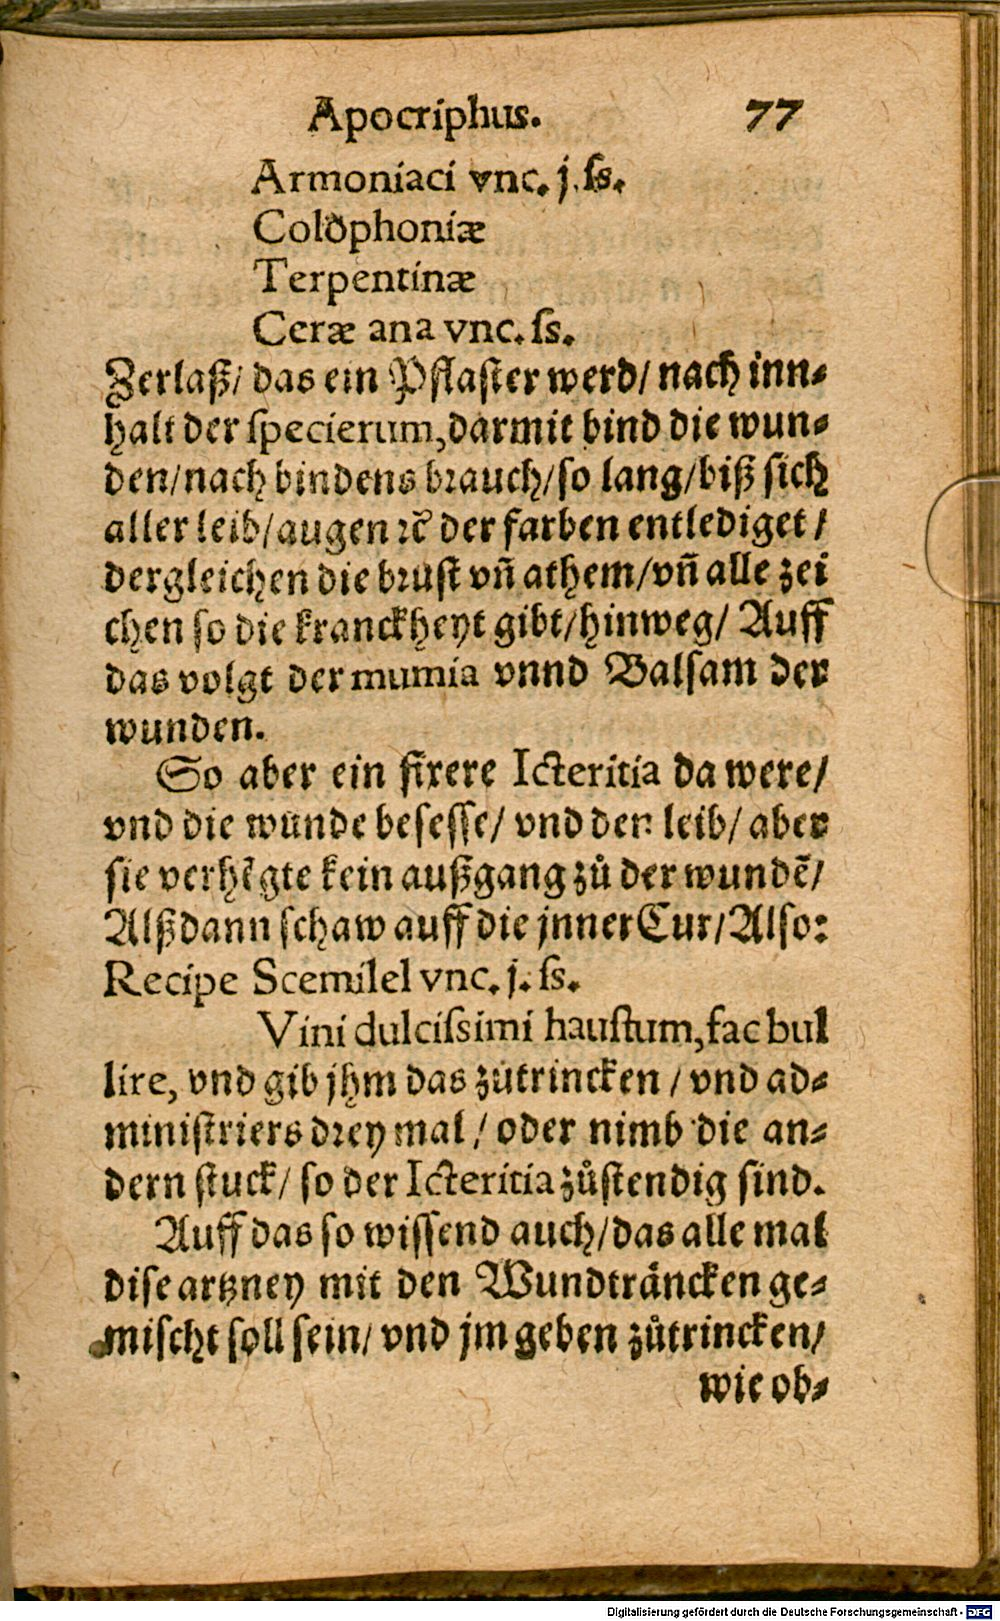 Apocriphus. 77
Armoniaci vnc. j. ſs.
Colophoniæ
Terpentinæ
Ceræ ana vnc. ſs.
Zerlaß/ das ein Pflaſter werd/ nach inn⸗
halt der ſpecierum, darmit bind die wun⸗
den/ nach bindens brauch/ ſo lang/ biß ſich
aller leib/ augen ꝛc̃ der farben entlediget/
dergleichen die bruſt vñ athem/ vñ alle zei
chen ſo die kranckheyt gibt/ hinweg/ Auff
das volgt der mumia vnnd Balſam der
wunden.
So aber ein fixere Icteritia da were/
vnd die wunde beſeſſe/ vnd den leib/ aber
ſie verhẽgte kein außgang zů der wundẽ/
Alßdann ſchaw auff die jnner Cur/ Alſo:
Recipe Scemilel vnc. j. ſs.
Vini dulciſsimi hauſtum, fac bul
lire, vnd gib jhm das zůtrincken/ vnd ad⸗
miniſtriers drey mal/ oder nimb die an⸗
dern ſtuck/ ſo der Icteritia zůſtendig ſind.
Auff das ſo wiſſend auch/ das alle mal
diſe artzney mit den Wundträncken ge⸗
miſcht ſoll ſein/ vnd jm geben zůtrincken/
wie ob⸗
Digitalisierung gefördert durch die Deutsche Forschungsgemeinschaft - DFG